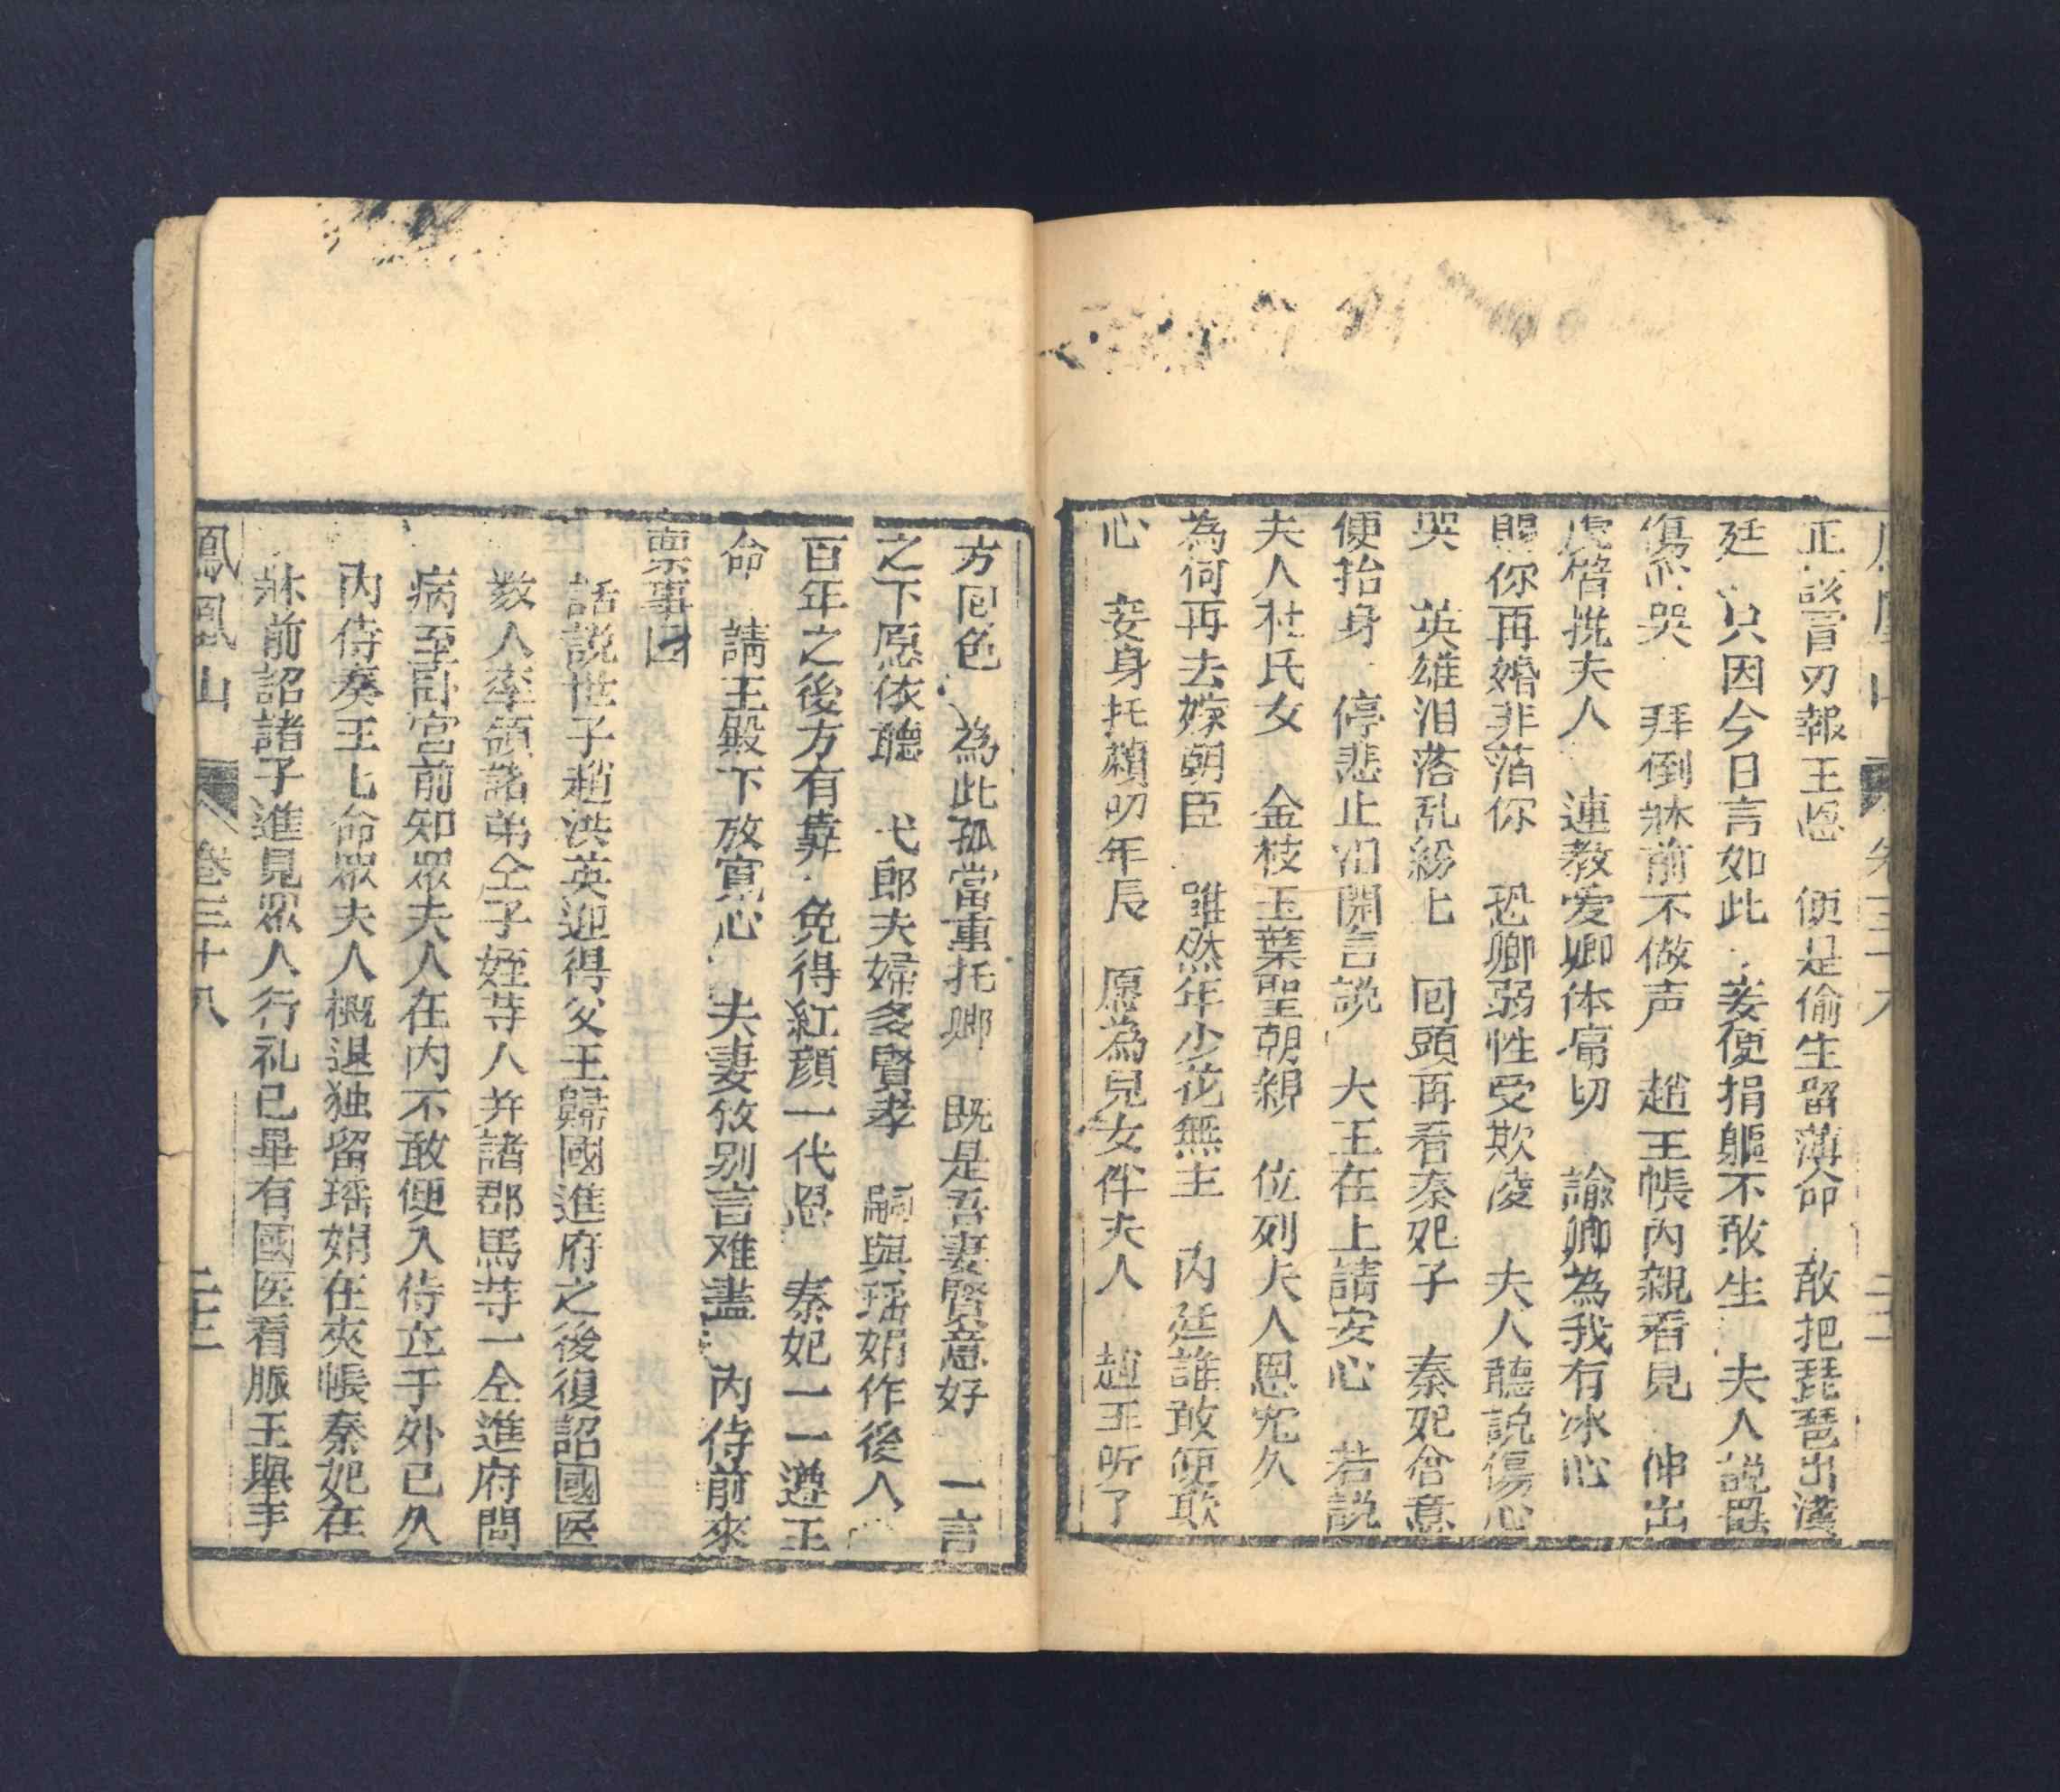 正該冒刃報王恩　便是偷生留薄命　敢把琵琶出漢
廷　只因今日言如此　妾便捐軀不敢生　夫人說罷
傷心哭　拜倒牀前不做声　趙王帳內親看見　伸出
虎臂挽夫人　連教爱卿体痛切　諭卿為我有冰心
賜你再婚非落你　恐卿弱性受欺凌　夫人聽説傷心
哭　英雄泪落乱紛匕　回頭再看秦妃子　秦妃含意
便抬身　停悲止泪開言説　大王在上請安心　若説
夫人杜氏女　金枝玉葉聖朝親　位列夫人恩宠久
為何再去嫁朝臣　雖然年少花無主　內廷誰敢便欺
心　妾身托賴叨年長　愿為兒女伴夫人　趙王听了
方回色　為此孤當重托卿　既是吾妻賢意好　一言
之下愿依聽　弋郎夫婦多賢孝　嗣與瑶娟作後人
百年之後方有靠　免得紅顔一代恩　秦妃一一遵王
命　請王殿下放寬心　夫妻攸别言难盡　內侍前來
稟事因
話説世子趙洪英迎得父王歸國進府之後復詔國医
数人率領諸弟仝子姪䒭人并諸郡馬䒭一仝進府問
病至卧宮前知眾夫人在內不敢便入侍立于外已久
內侍奏王匕命眾夫人概退独留瑶娟在夾帳秦妃在
牀前詔諸子進見眾人行礼已畢有國医看脈王舉手
鳳凰山　卷三十八　二十二